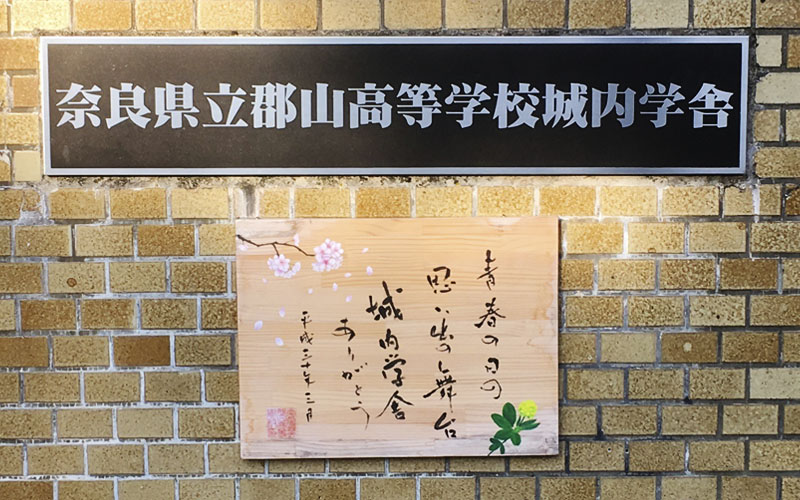 奈良県立郡山高等学校城内学舎
青春の日の
思い出の舞台
城内学舎
ありがとう
平成三十年三月